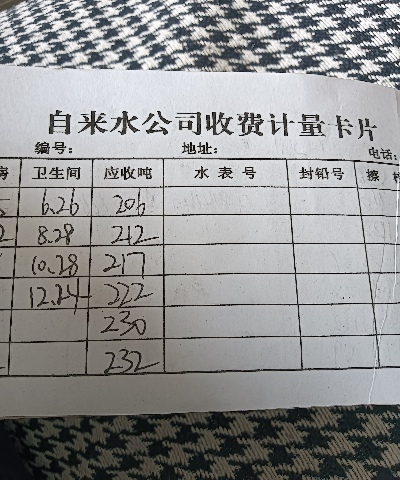 自来水公司收费计量卡片
编号: 地址: 电话:
房 卫生间 应收吨 水表号 封铅号
6.26 206
2 8.28 212
10.28 217
12.24 222
230
232